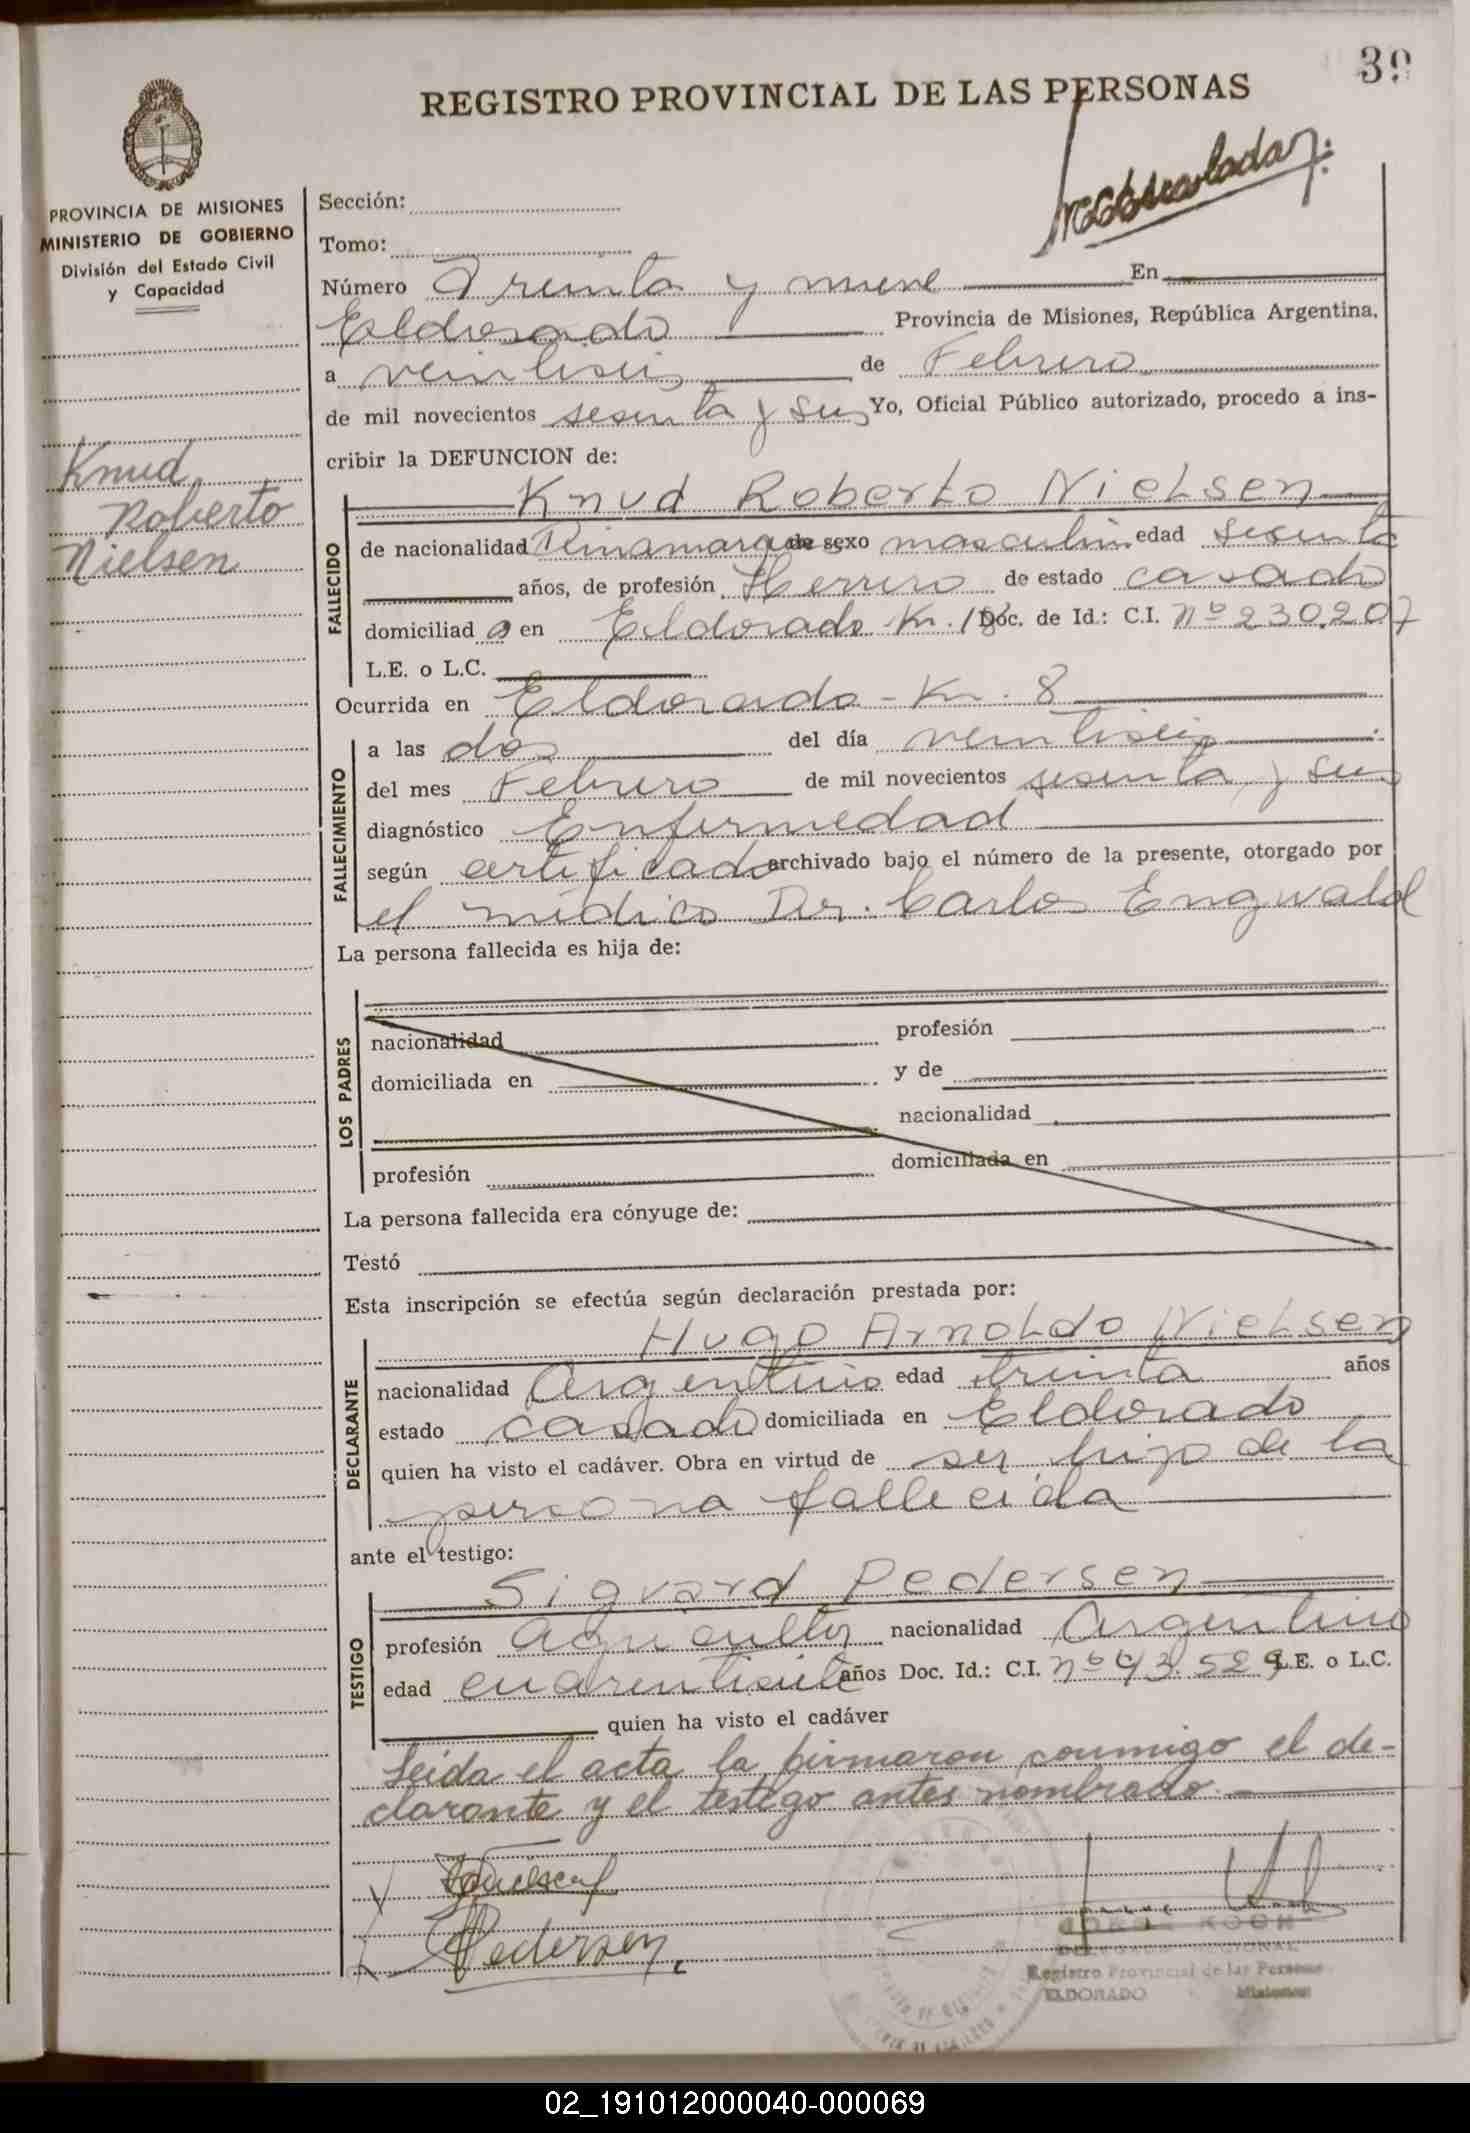 39
REGISTRO PROVINCIAL DE LAS PERSONAS
PROVINCIA DE MISIONES
MINISTERIO DE GOBIERNO
División del Estado Civil
y Capacidad
Knud
Roberto
Nielsen
Sección:
Tomo:
Número Treinta y nueve En
Eldorado Provincia de Misiones, República Argentina,
a veintiseis de Febrero
de mil novecientos sesenta y seis Yo, Oficial Público autorizado, procedo a ins-
cribir la DEFUNCION de:
FALLECIDO
Knud Roberto Nielsen
de nacionalidad Dinamarquesa de sexo masculino edad sesenta
años, de profesión Herrero de estado casado
domiciliad o en Eldorado Km. 18 Doc. de Id.: C.I. Nº 230.207
L.E. o L.C.
Ocurrida en Eldorado - Km. 8
FALLECIMIENTO
a las dos del día veintiseis
del mes Febrero de mil novecientos sesenta y seis
diagnóstico Enfermedad
según certificado archivado bajo el número de la presente, otorgado por
el médico Dr. Carlos Engwald
La persona fallecida es hija de:
LOS PADRES
nacionalidad profesión
domiciliada en y de
nacionalidad
profesión domiciliada en
La persona fallecida era cónyuge de:
Testó
Esta inscripción se efectúa según declaración prestada por:
DECLARANTE
Hugo Arnoldo Nielsen
nacionalidad Argentino edad treinta años
estado casado domiciliada en Eldorado
quien ha visto el cadáver. Obra en virtud de ser hijo de la
persona fallecida
ante el testigo:
TESTIGO
Sigvard Pedersen
profesión Agricultor nacionalidad Argentino
edad cuarentisiete años Doc. Id.: C.I. nº 43.529 L.E. o L.C.
quien ha visto el cadáver
Leida el acta la firmaron conmigo el de-
clarante y el testigo antes nombrado.
Pedersen
KOCH
Registro Provincial de las Personas
ELDORADO Misiones
02_191012000040-000069